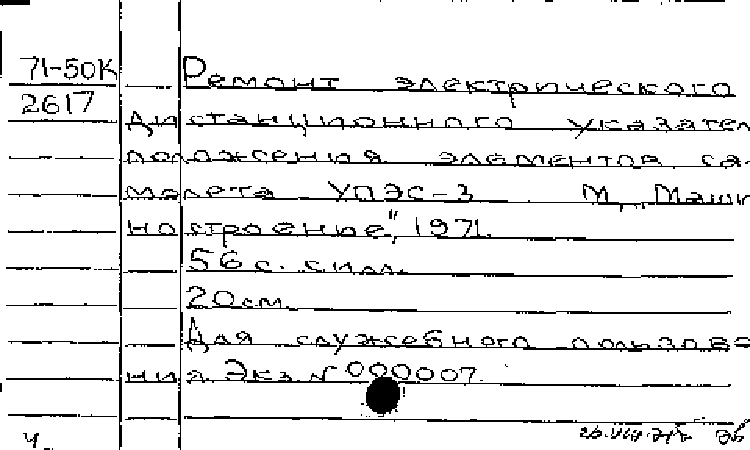 71-50К Ремонт электрического
2617 дистанционного указател
положения элементов са-
молета УПЭС-3 М., „Маши
ностроение", 1971.
56 с. с илл.
20см.
Для служебного пользова
ния. Экз. № 000007.
ч.